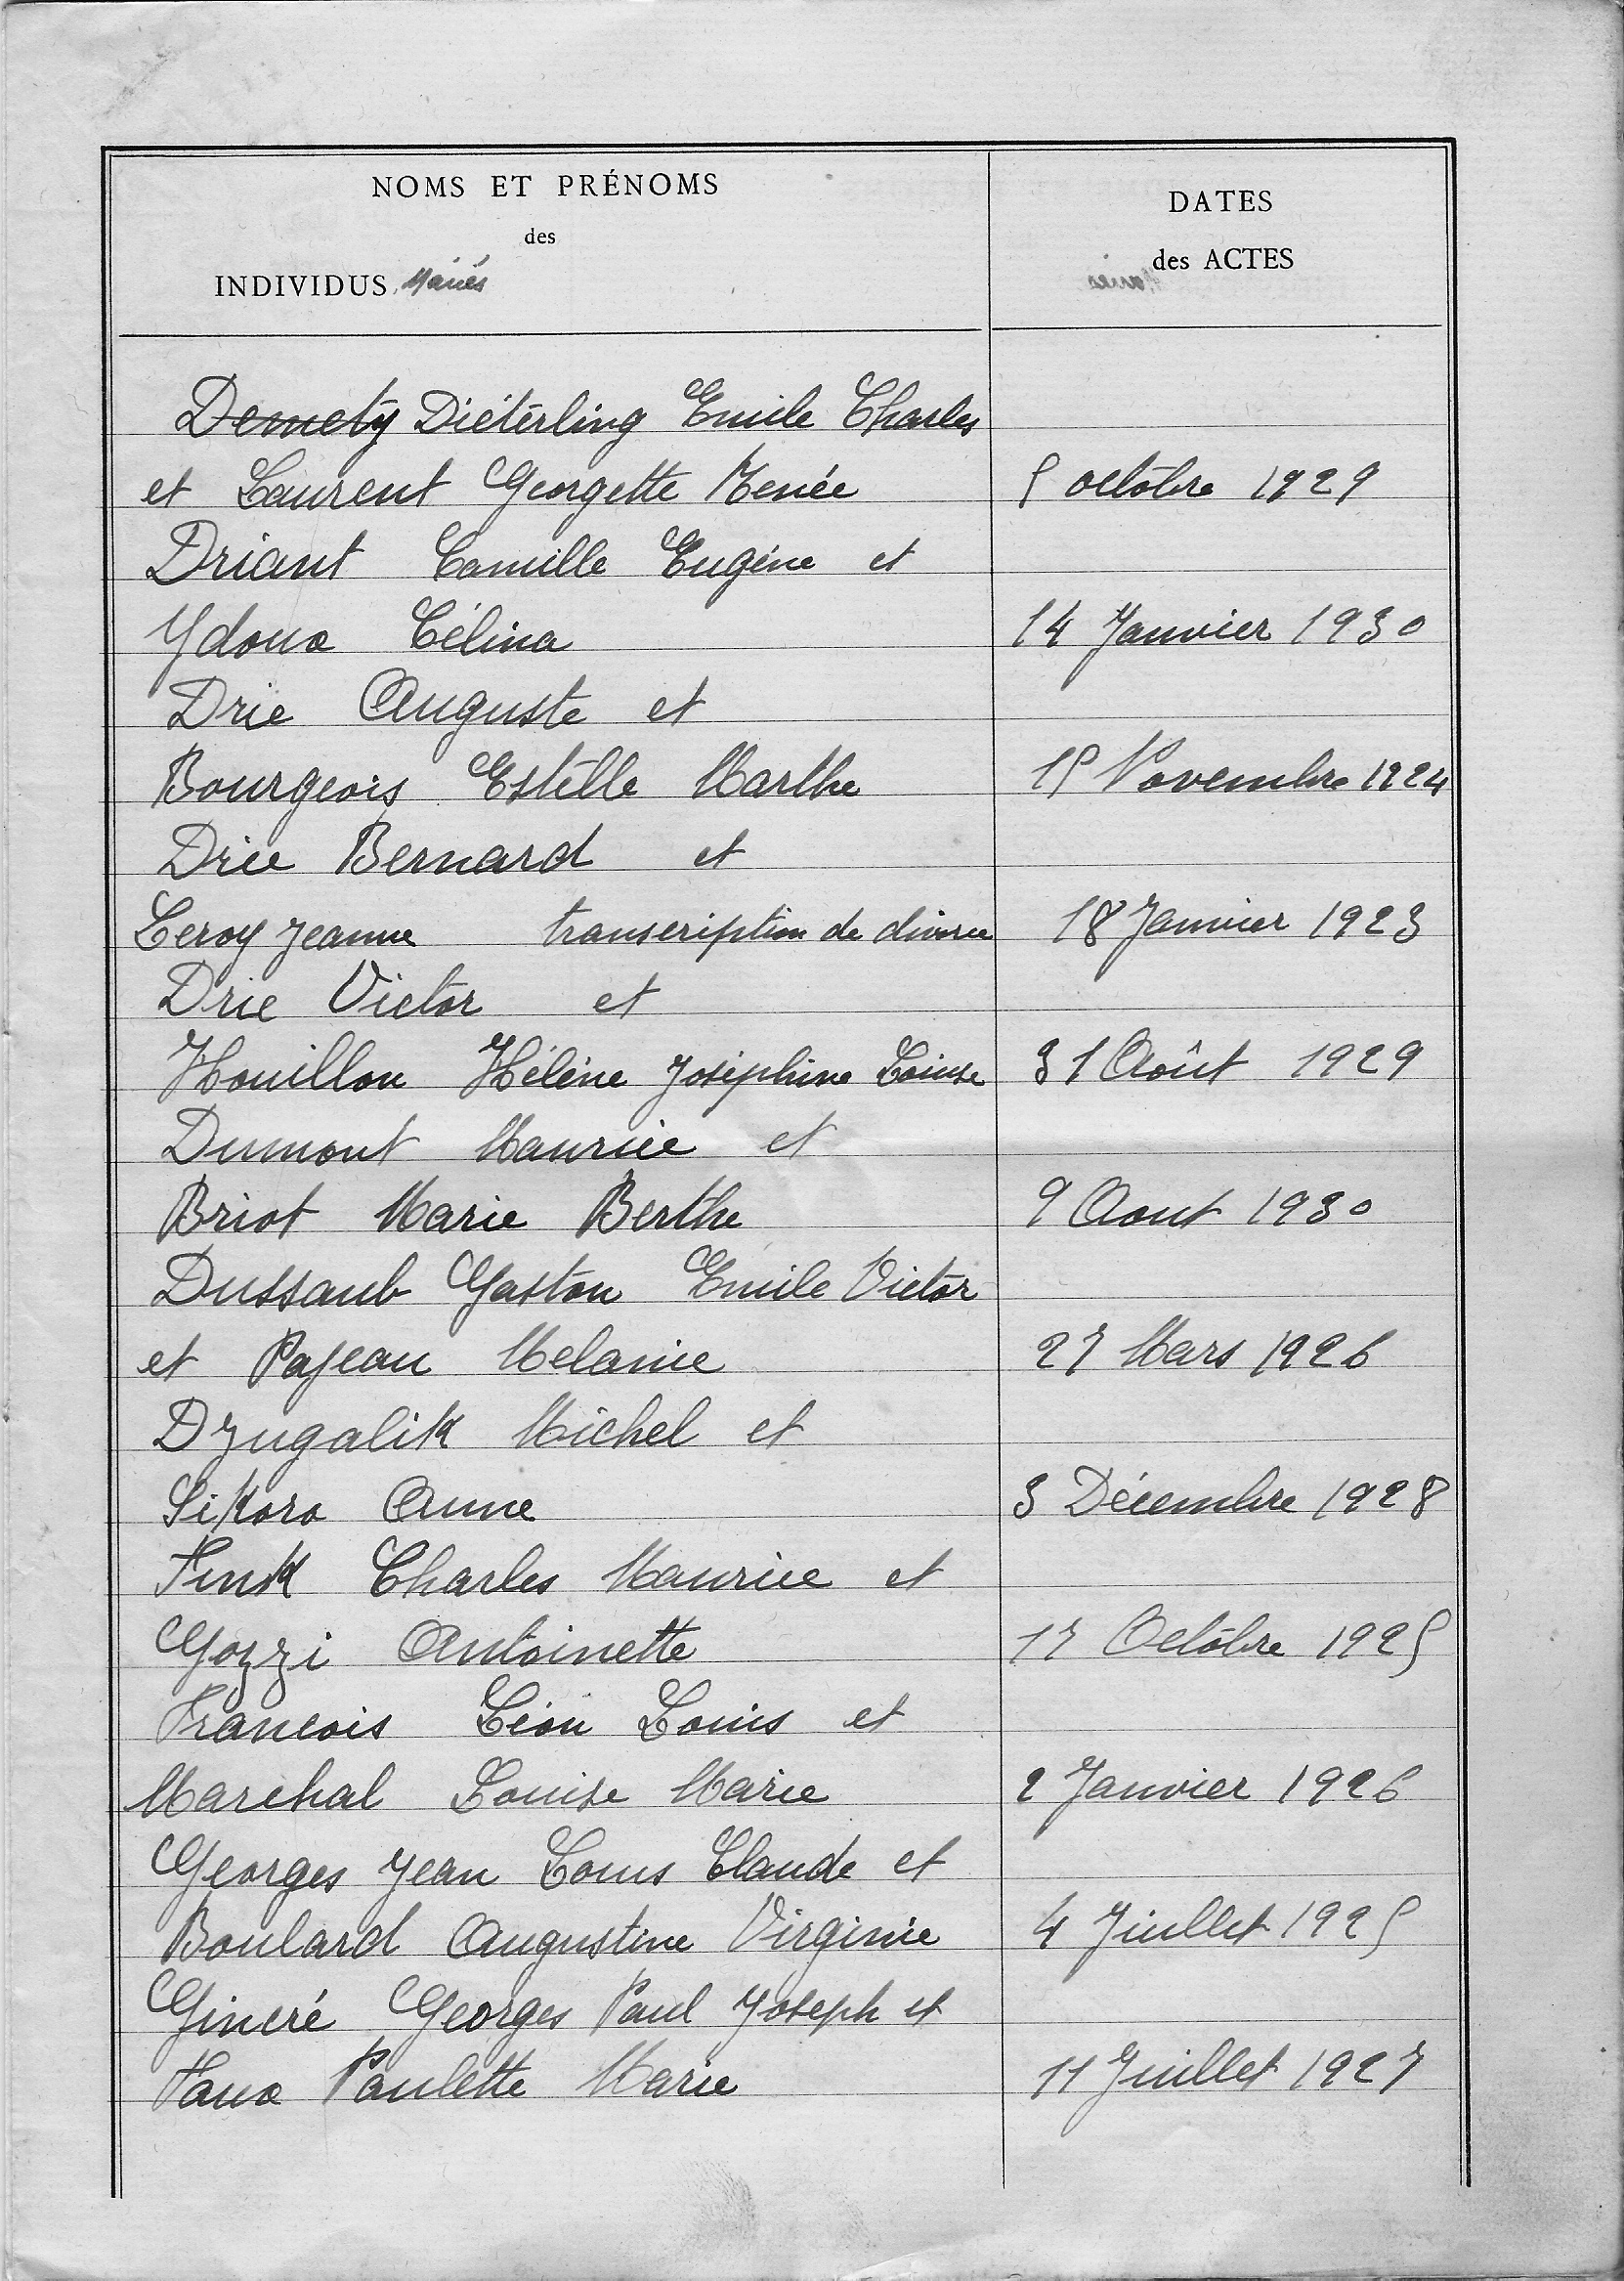 NOMS ET PRÉNOMS
des
INDIVIDUS Mariés
DATES
des ACTES
Demety Dietérling Emile Charles
et Laurent Georgette Renée 5 octobre 1929
Driant Camille Eugène et
Ydoux Célina 14 Janvier 1930
Drie Auguste et
Bourgeois Estelle Marthe 15 Novembre 1924
Drie Bernard et
Leroy Jeanne transcription de divorce 18 Janvier 1923
Drie Victor et
Houillon Hélène Joséphine Louise 31 Août 1929
Dumont Maurice et
Briot Marie Berthe 9 Aout 1930
Dussaub Gaston Emile Victor
et Pajeau Melanie 27 Mars 1926
Dzugalik Michel et
Sikora Anne 3 Décembre 1928
Finsk Charles Maurice et
Gozzi Antoinette 17 Octobre 1925
Francois Léon Louis et
Marchal Louise Marie 2 Janvier 1926
Georges Jean Louis Claude et
Boulard Augustine Virginie 4 Juillet 1925
Gineré Georges Paul Joseph et
Paulette Marie 11 Juillet 1927